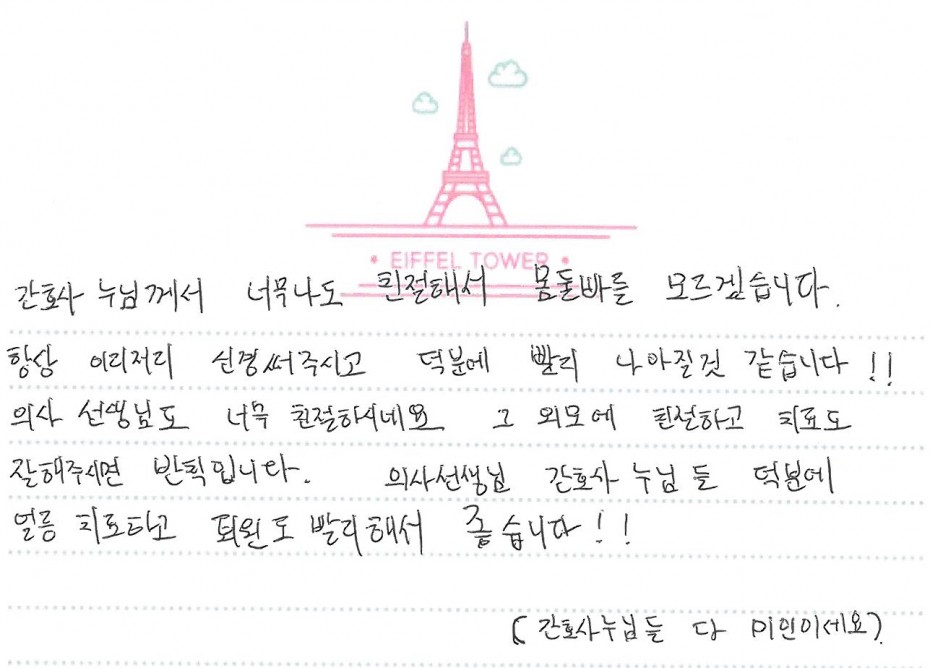 EIFFEL TOWER
간호사 누님께서 너무나도 친절해서 몸둘빠를 모르겠습니다.
항상 이리저리 신경써주시고 덕분에 빨리 나아질것 같습니다!!
의사 선생님도 너무 친절하시네요 그 외모에 친절하고 치료도
잘해주시면 반칙입니다. 의사선생님 간호사 누님들 덕분에
얼릉 치료하고 퇴원도 빨리해서 좋습니다!!
(간호사누님들 다 미인이세요).